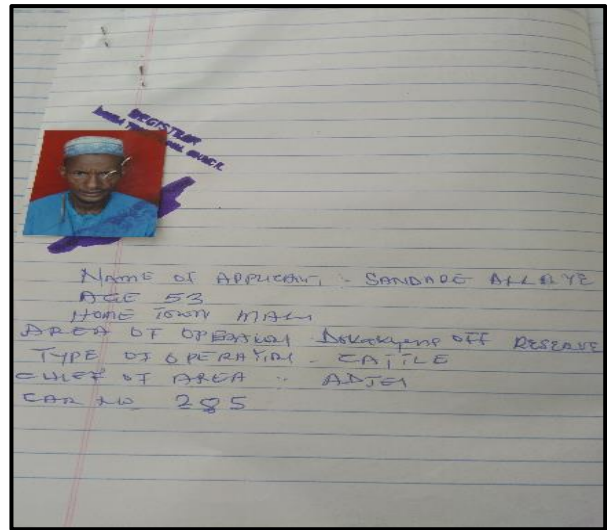 REGISTRAR
NAME OF APPLICANT :- SANDARE ALLAYE
AGE 53
HOME TOWN MALI
AREA OF OPERATION OFF RESERVE
TYPE OF OPERATION - CATTLE
CHIEF OF AREA :- ADJEI
CAR NO 285